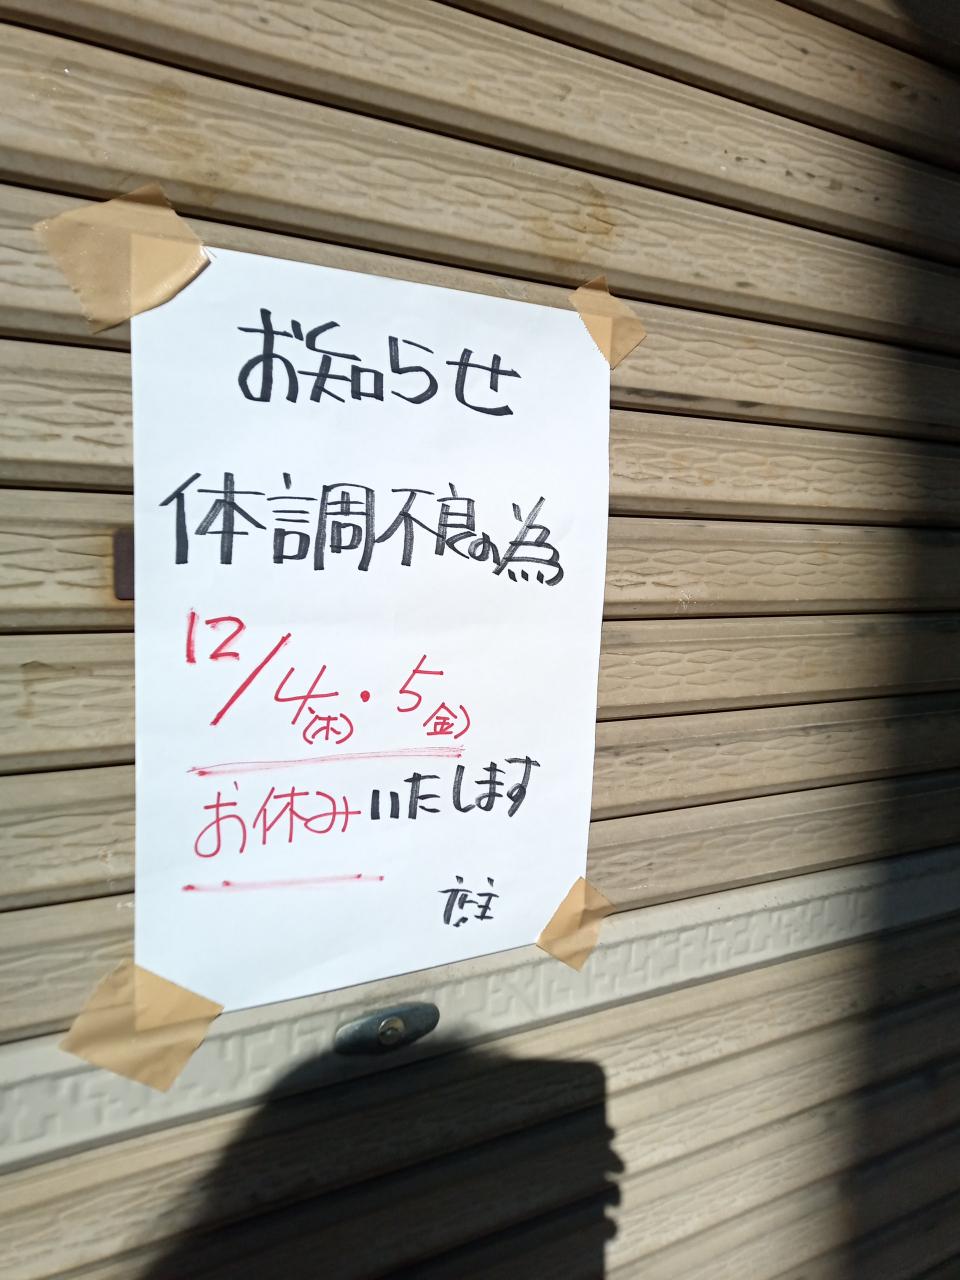 お知らせ
体調不良の為
12/4(木)・5(金)
お休みいたします
店主